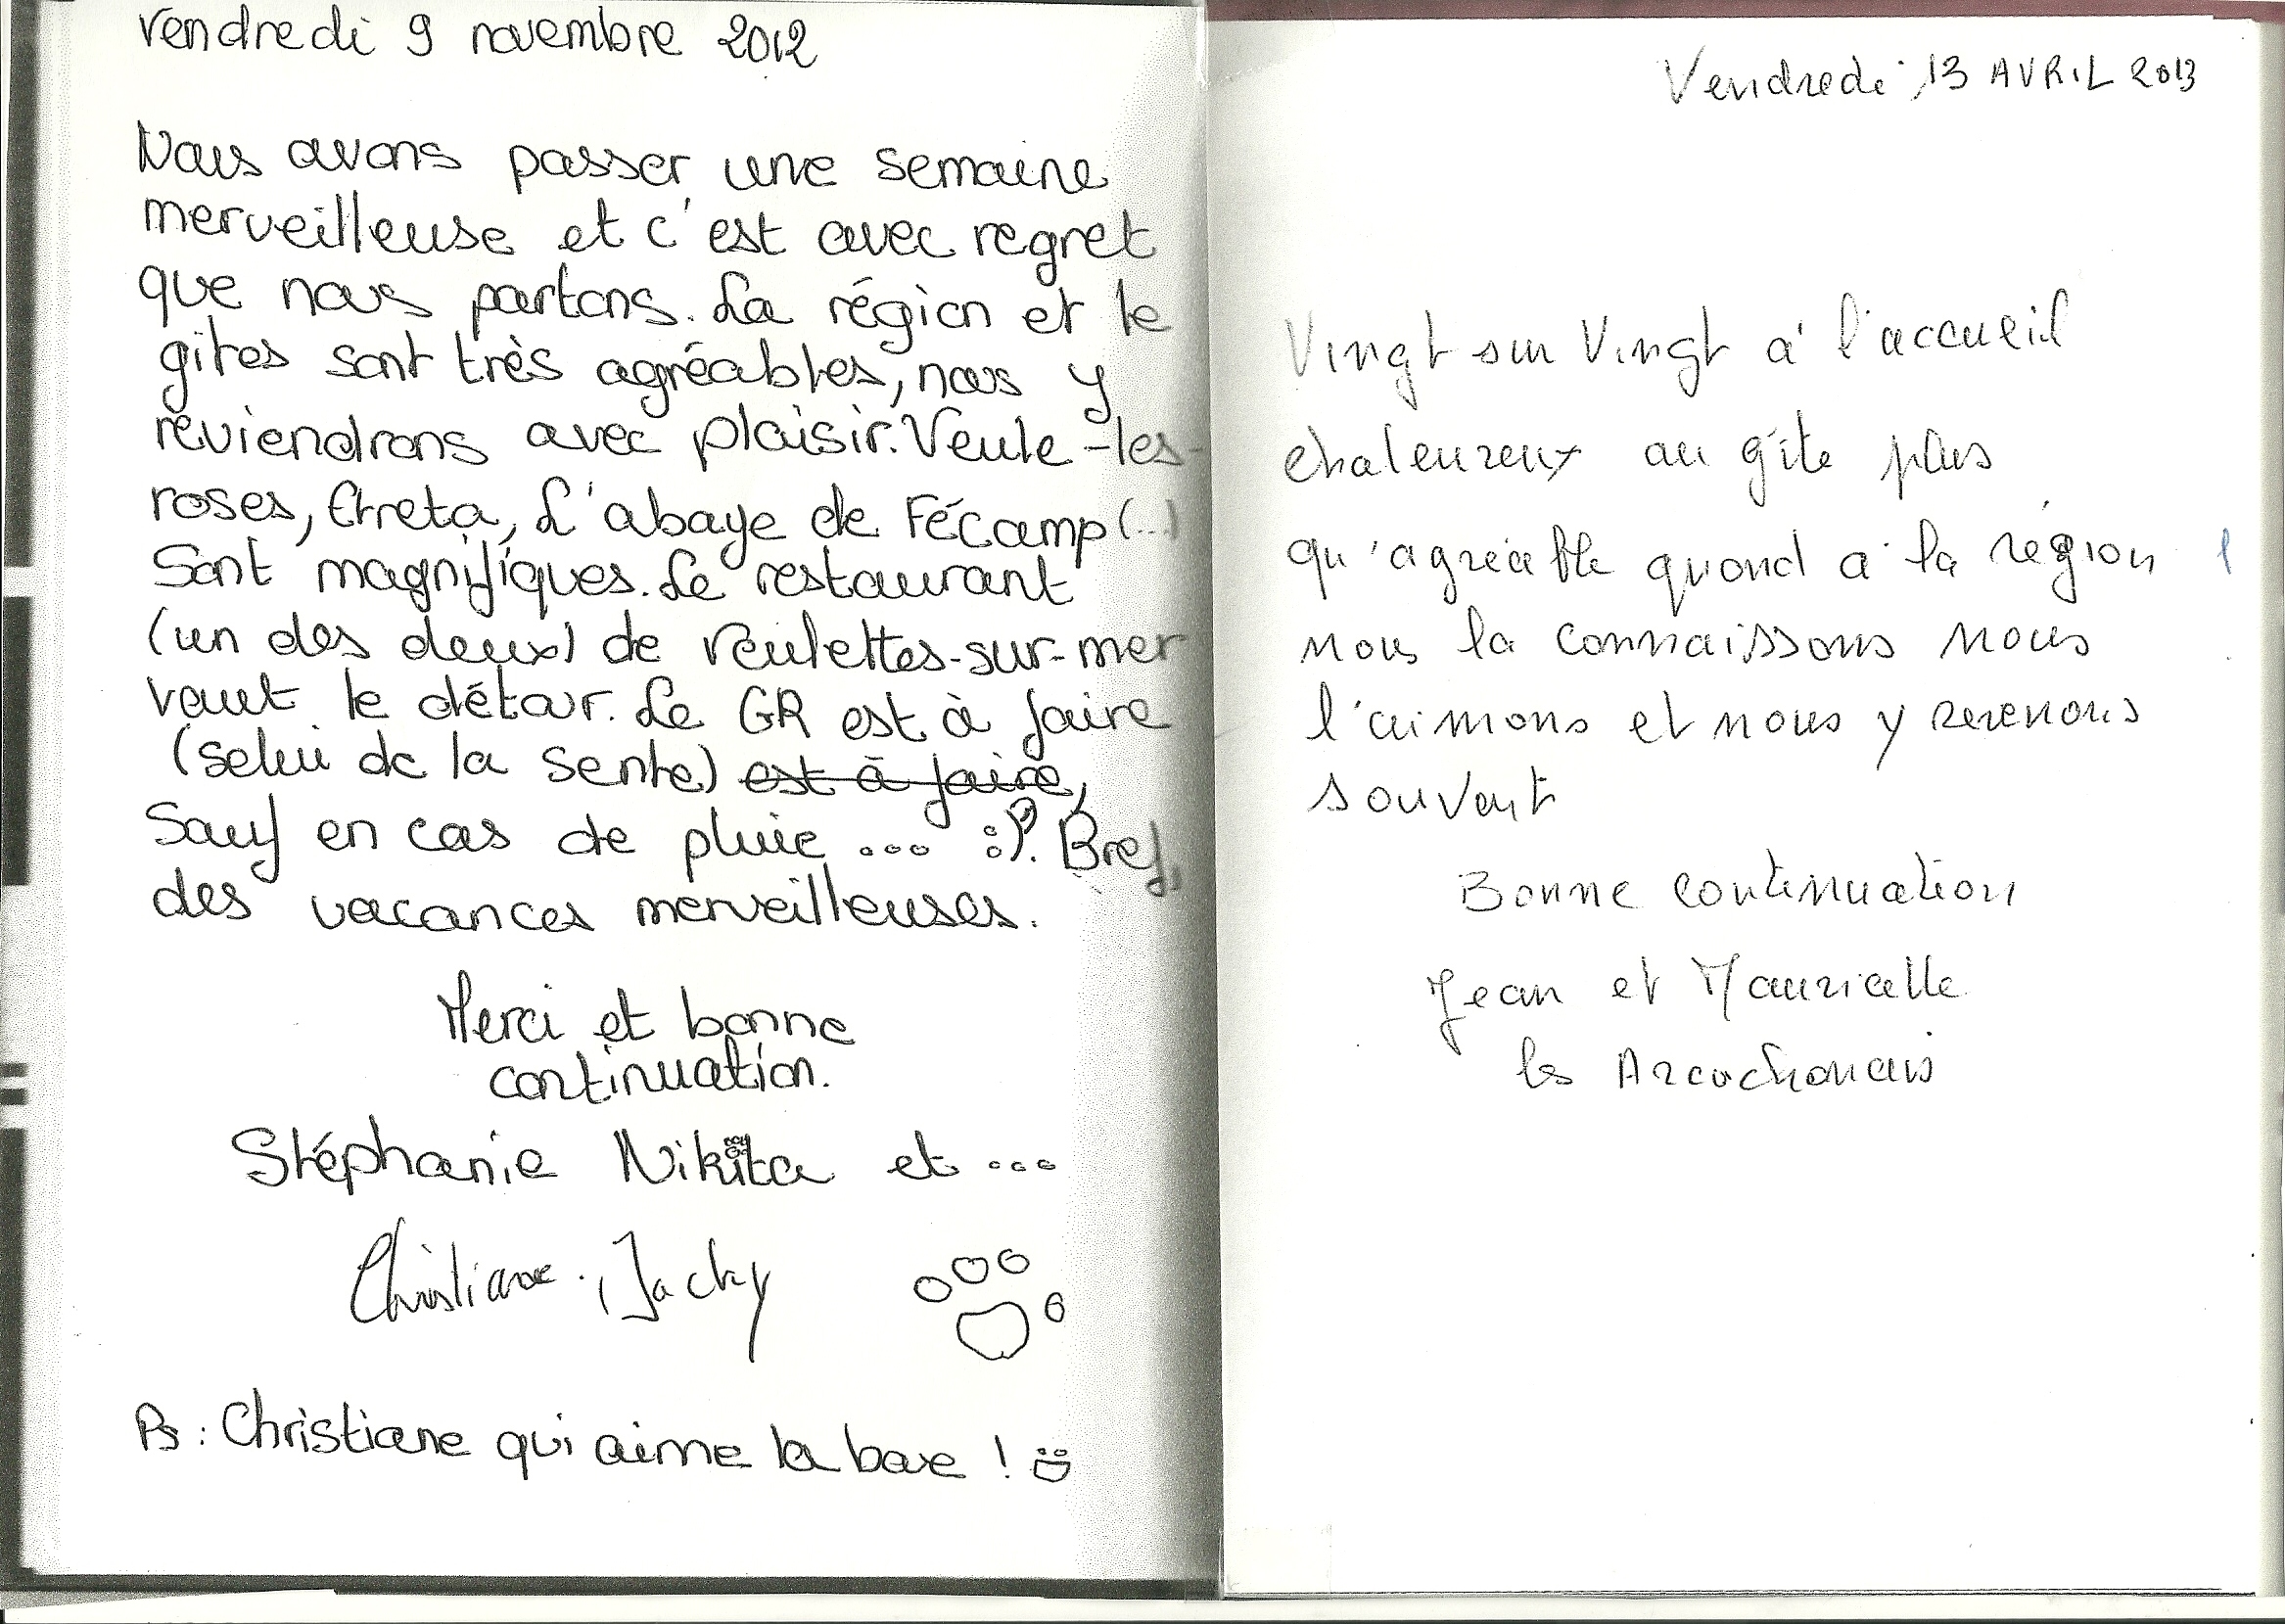 Vendredi 9 novembre 2012
Nous avons passer une semaine
merveilleuse et c'est avec regret
que nous partons. La région et le
gites sont très agréables, nous y
reviendrons avec plaisir. Veule-les-
roses, Etreta, L'abaye de Fécamp (...)
Sont magnifiques. Le restaurant
(un des deux) de Veulettes-sur-mer
vaut le détour. Le GR est à faire
(selui de la sente) est à faire,
Sauf en cas de pluie ... :). Bref,
des vacances merveilleuses.
Merci et bonne
continuation.
Stéphanie Nikita et ...
Christiane. Jacky
Ps : Christiane qui aime la boue !
Vendredi 13 AVRIL 2013
Vingt sur Vingt à l'accueil
chaleureux au gîte plus
qu'agréable quond a la région
nous la connaissons nous
l'aimons et nous y revenons
souvent
Bonne continuation
Jean et Mauricette
les Arcachonais